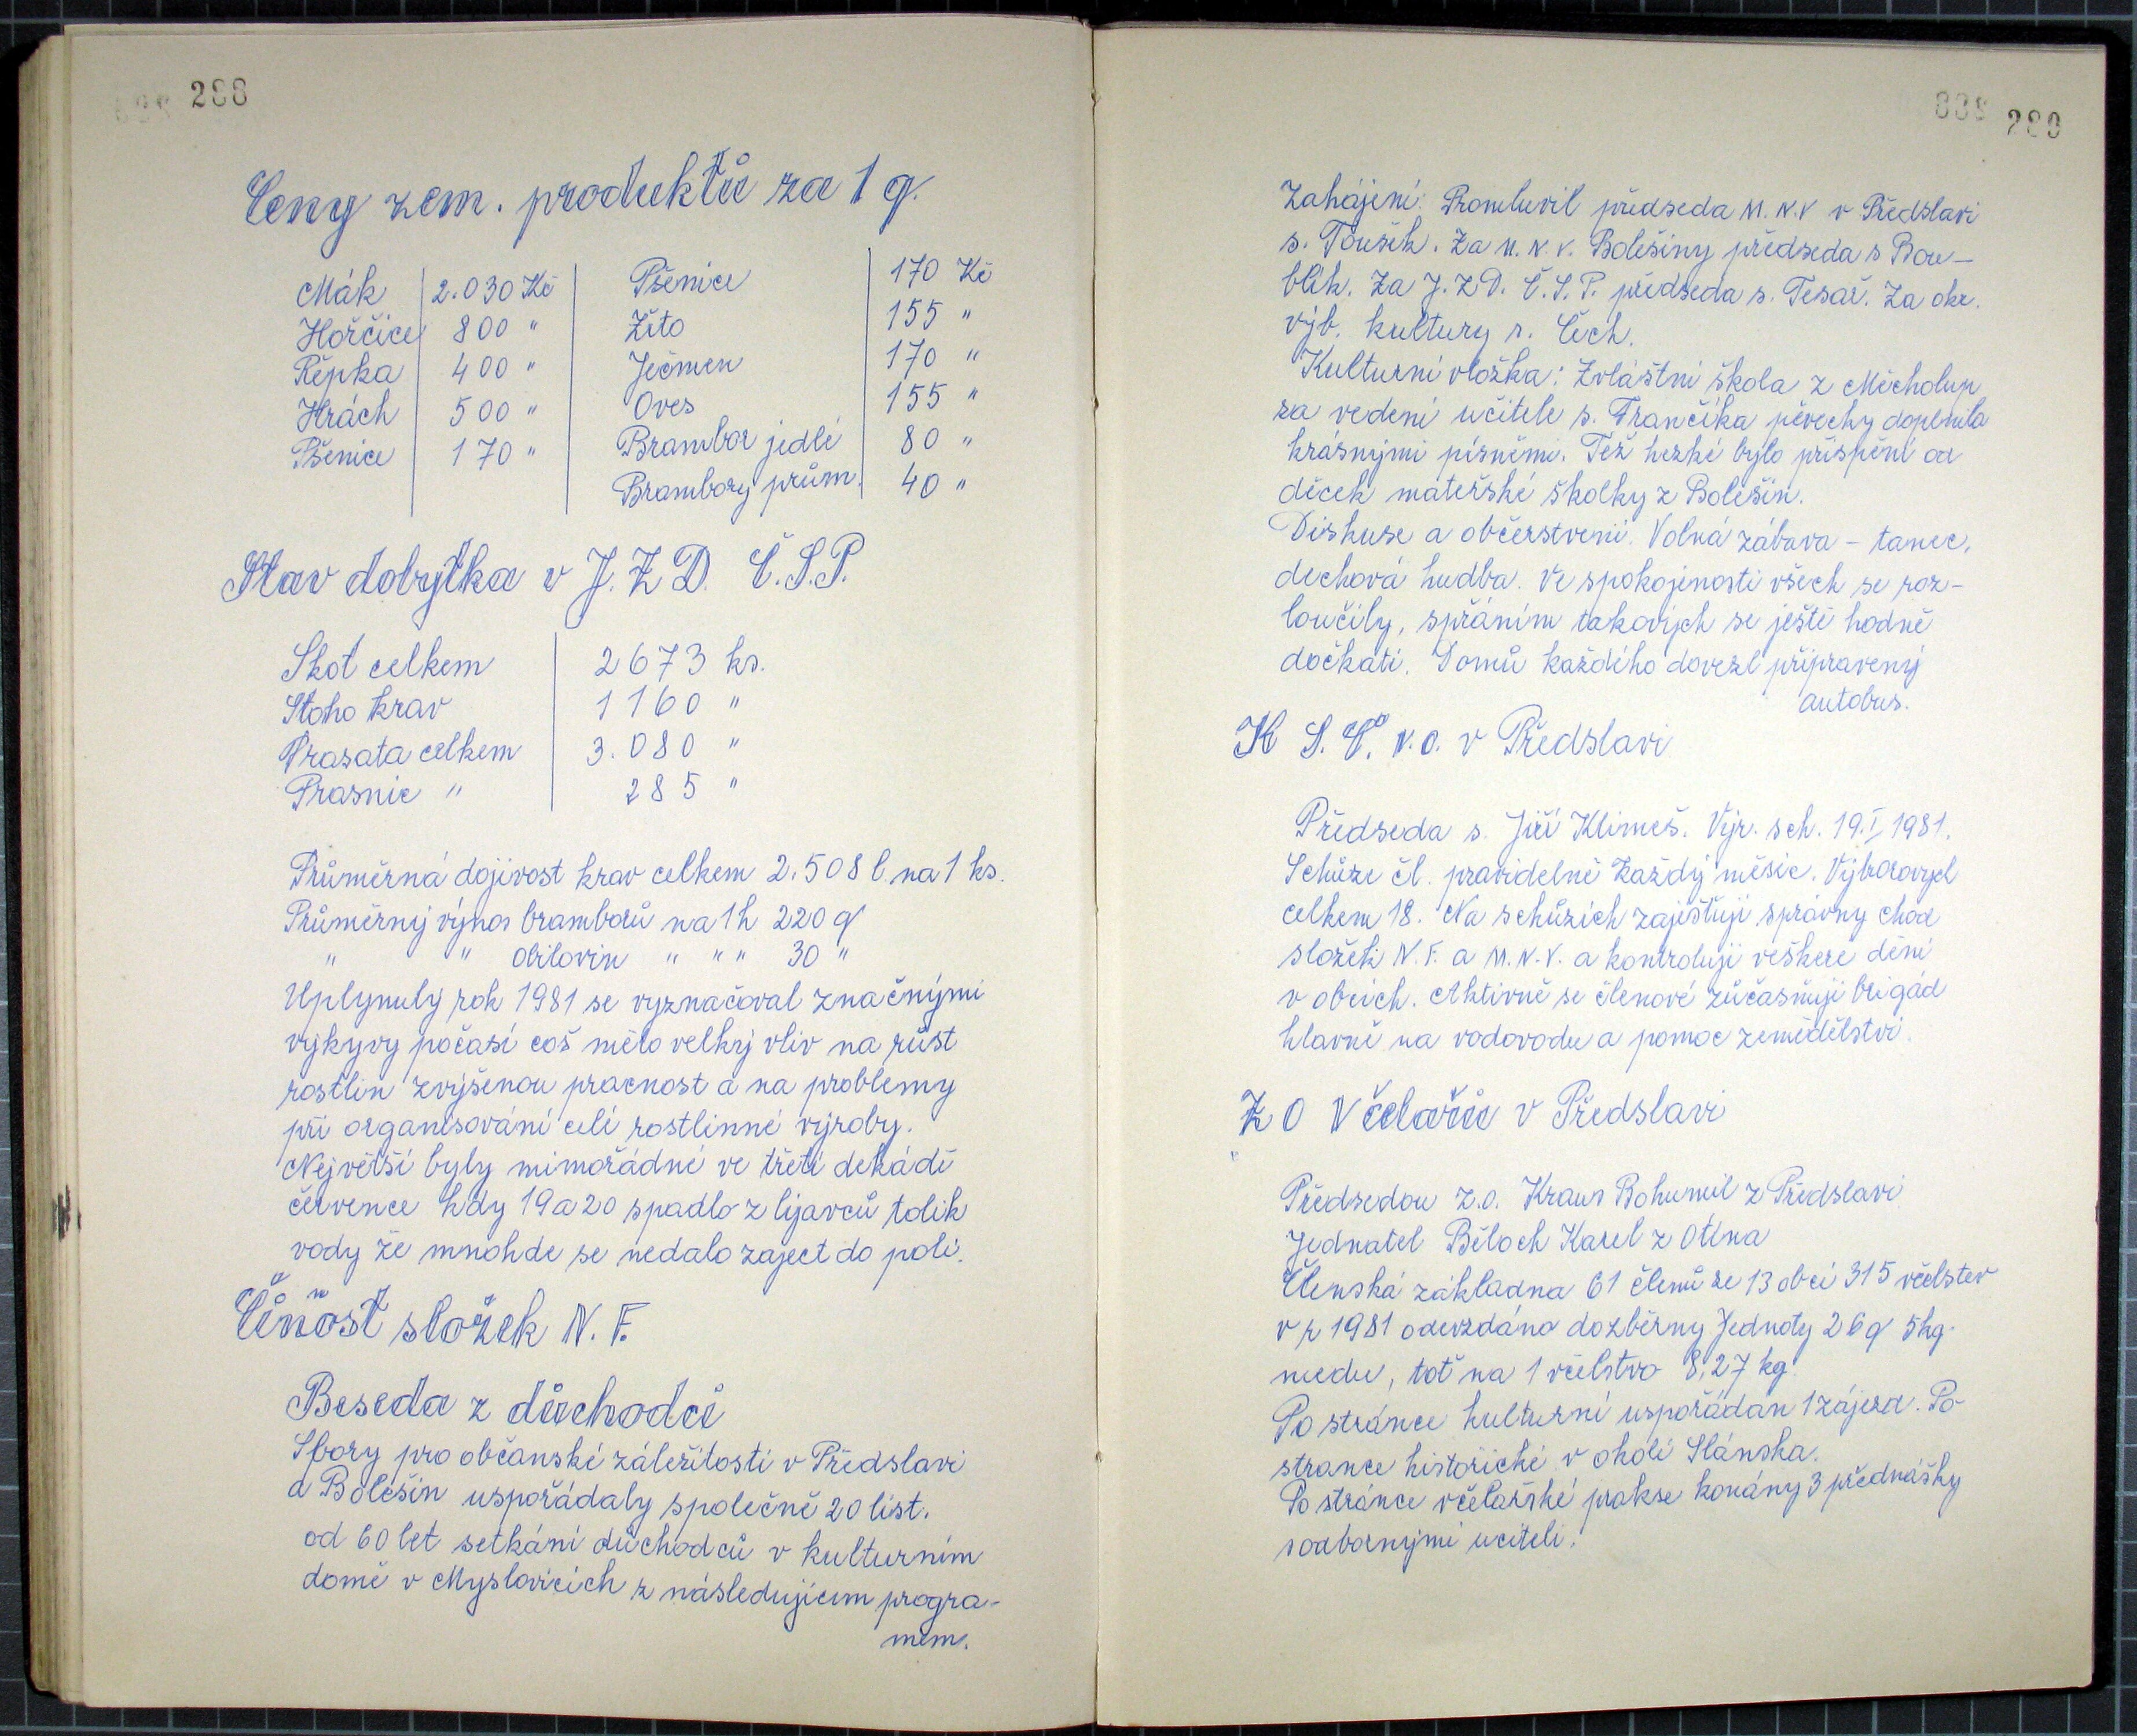 288
Ceny zem. produktů za 1 q.
Mák 2.030 Kč Pšenice 170 Kč
Hořčice 800 " Žito 155 "
Řepka 400 " Ječmen 170 "
Hrách 500 " Oves 155 "
Pšenice 170 " Brambor jedlé 80 "
Brambory prům. 40 "
Stav dobytka v J.Z.D. Č.S.P.
Skot celkem 2673 ks.
Stoho krav 1160 "
Prasata celkem 3.080 "
Prasnic " 285 "
Průměrná dojivost krav celkem 2.508 l. na 1 ks.
Průměrný výnos bramborů na 1h 220 q
" " obilovin " " " 30 "
Uplynulý rok 1981 se vyznačoval značnými
výkyvy počasí což mělo velký vliv na růst
rostlin zvýšenou pracnost a na problémy
při organisování celé rostlinné výroby.
Největší byly mimořádné ve třetí dekádě
července kdy 19 a 20 spadlo z lijavců tolik
vody že mnohde se nedalo zaject do polí.
Činost složek N.F.
Beseda z důchodci
Sbory pro občanské záležitosti v Předslavi
a Bolešin uspořádaly společně 20 list.
od 60 let setkání důchodců v kulturním
domě v Myslovicích z následujícím progra-
mem.
289
Zahájení: Promluvil předseda M.N.V v Předslavi
s. Toušek. Za M.N.V. Bolešiny předseda s Bou-
blík. Za J.Z.D. Č.S.P. předseda s. Tesař. Za okr.
výb. kultury s. Čech.
Kulturní vložka: Zvláštní škola z Měcholup
za vedení učitele s. Frančíka pěvecky doplnila
krásnými písněmi. Též hezké bylo přispění od
děcek mateřské školky z Bolešin.
Diskuse a občerstvení. Volná zábava - tanec,
dechová hudba. Ve spokojenosti všech se roz-
loučily, spřáním takových se ještě hodně
dočkati. Domů každého dovezl připravený
autobus.
K S.Č. v.o. v Předslavi
Předseda s. Jiří Klimeš. Výr. sch. 19.I 1981.
Schůze čl. pravidelně každý měsíc. Výborových
celkem 18. Na schůzích zajišťují správny chod
složek N.F. a M.N.V. a kontrolují veškeré dění
v obcích. Aktivně se členové zůčasňují brigád
hlavně na vodovodu a pomoc zemědělství.
Z O Včelařů v Předslavi
Předsedou z.o. Kraus Bohumil z Předslavi
Jednatel Běloch Karel z Otína
Členská základna 61 členů ze 13 obcí 315 včelstev
v r 1981 odevzdáno dozběrny Jednoty 26 q 5 kg.
medu, toť na 1 včelstvo 8,27 kg.
Po stránce kulturní uspořádan 1 zájezd. Po
strance historické v okolí Slánska.
Po stránce včelařské prakse konány 3 přednášky
sodbornými učiteli.